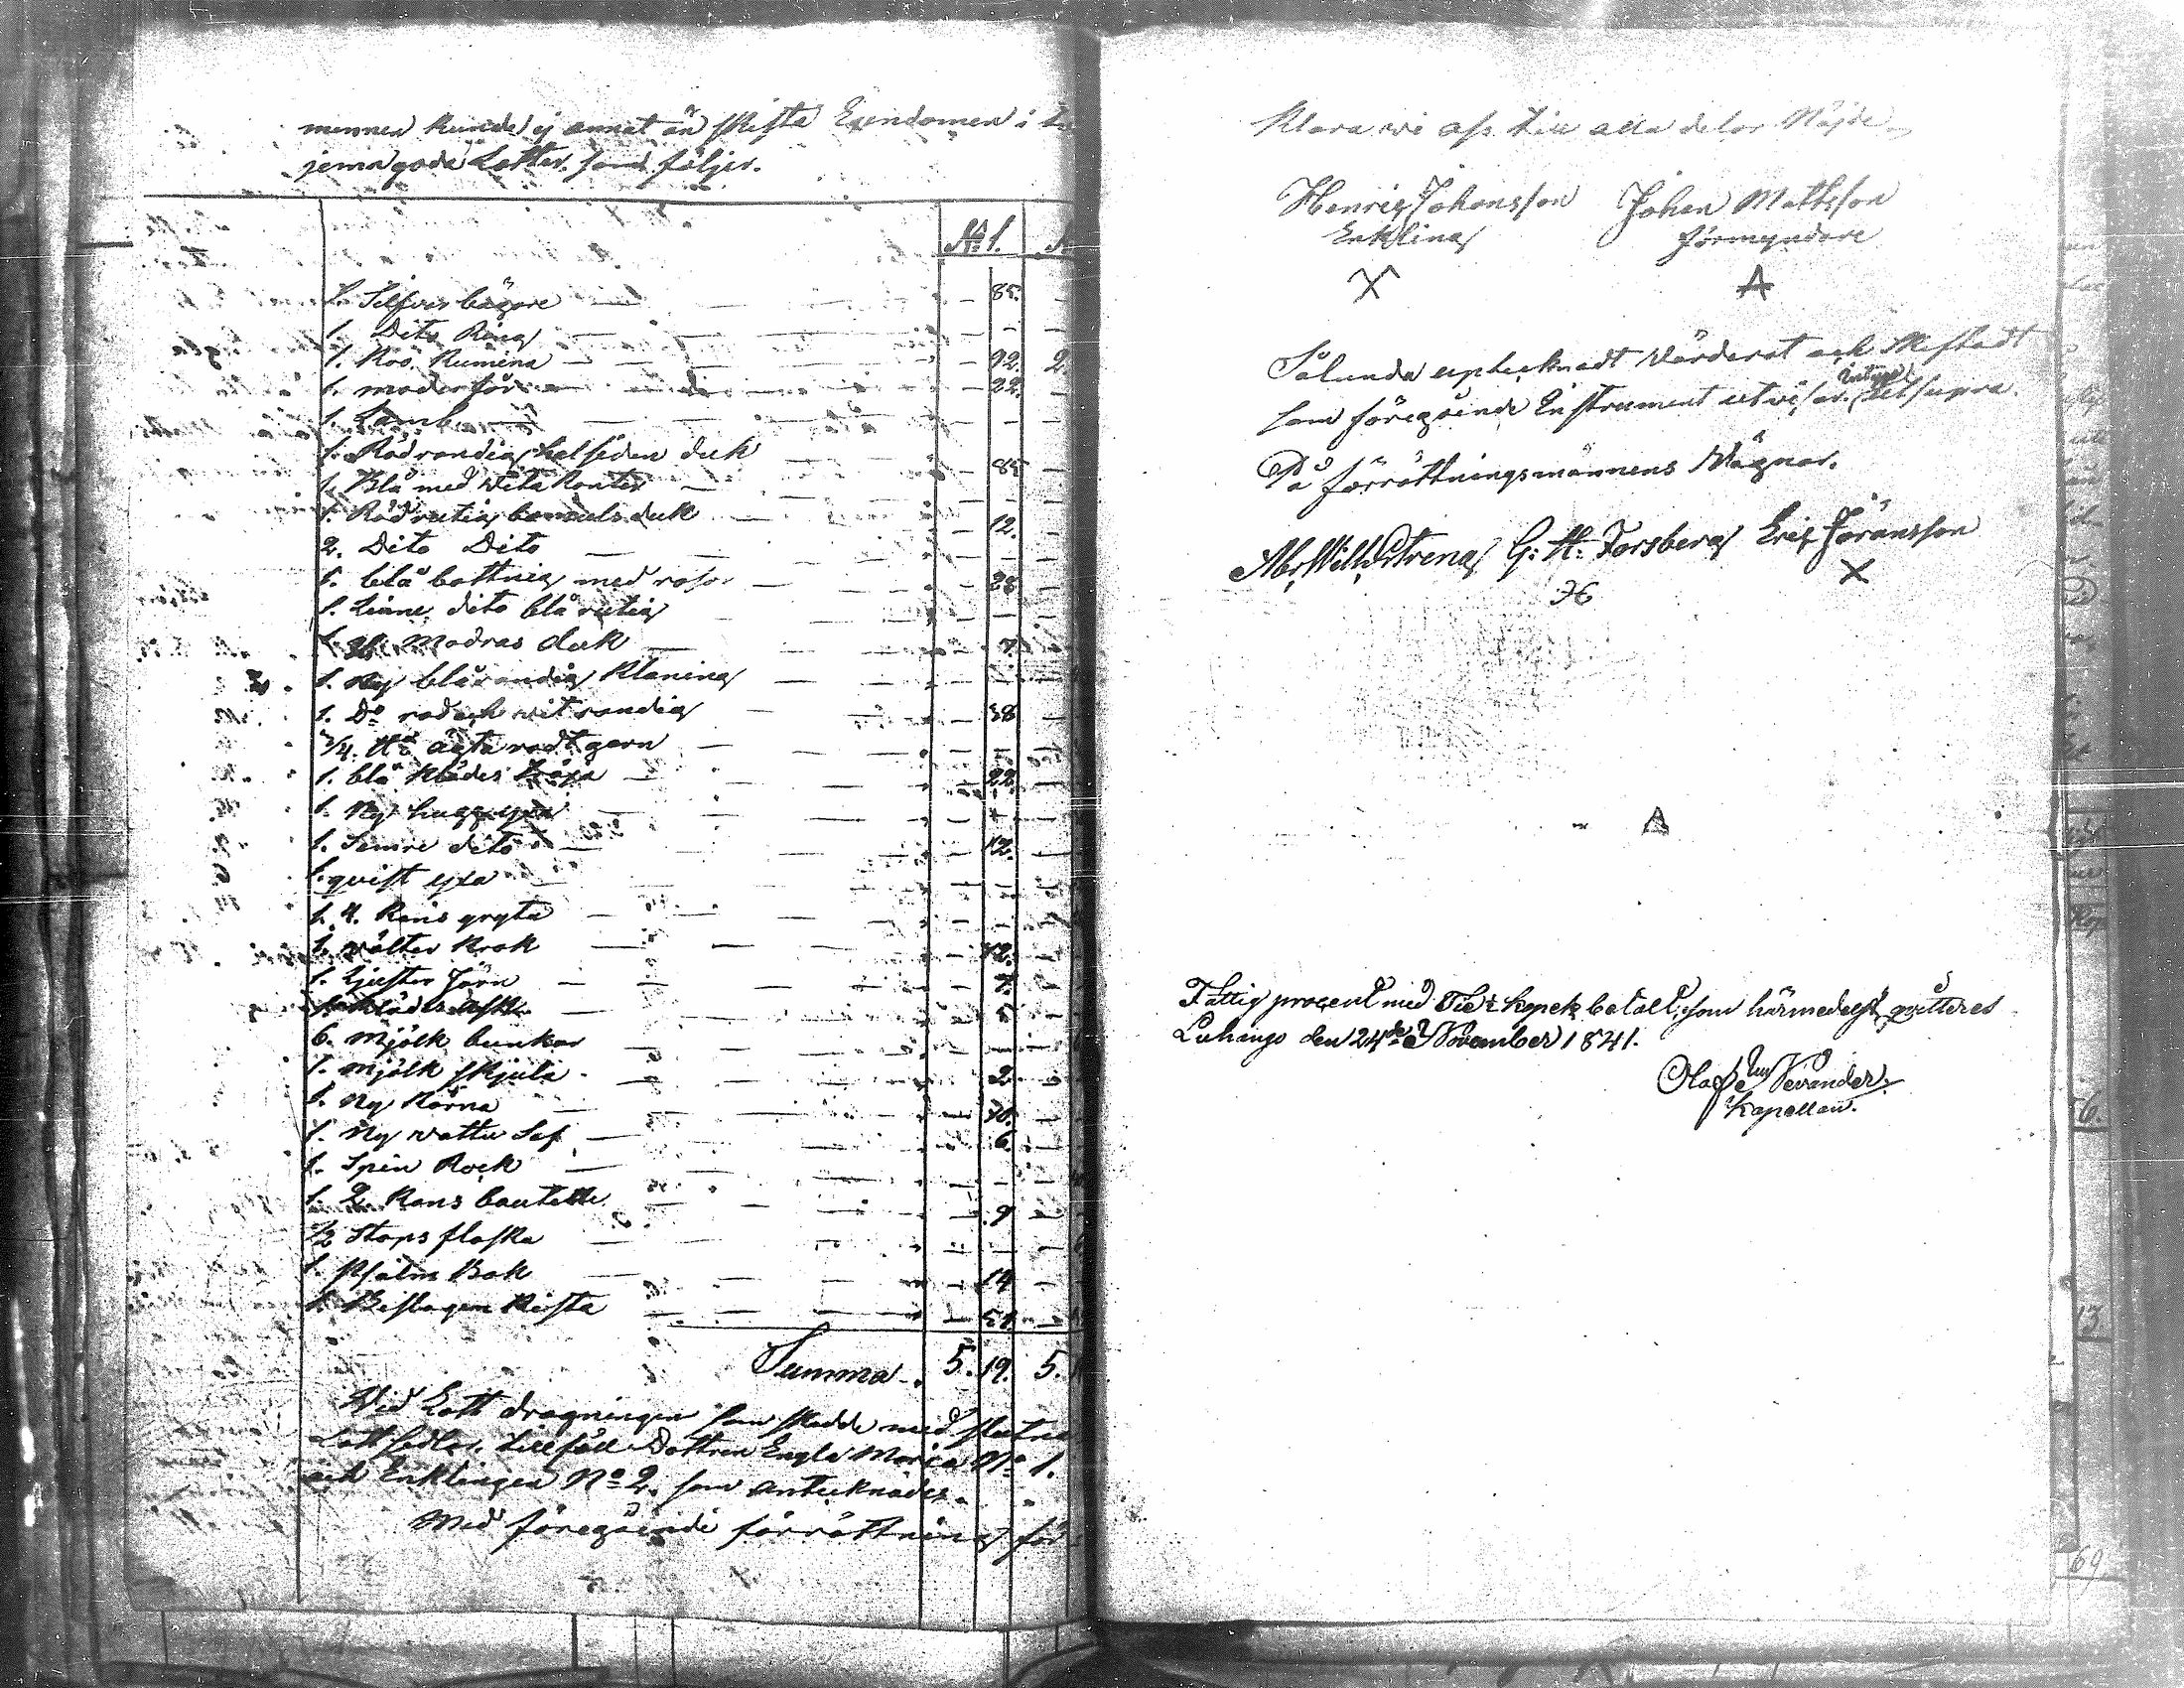 mennen kunde ej annat än skifta Egendomen i
jemngoda Lotter. som följer.
No 1.
1. Silfver bägare — — 85.
1. Dito Ring — — —
1. Ko. Rumina — — 92. 2.
1. moderfår — — 22.
1. Lamb — — —
1. Rödrandig halfsiden duk
1. Blå med vita kanter — 85
1. Rödrutig bomuls duk — —
2. Dito Dito — — 12.
1. blå bottnig med rosor —
1. Linne dito blårutig — 28
1. Madras duk — 7.
1. Ny blårandig Klaning — —
1. Do röd och vit randig — 38
3/4 äckta rödt garn — —
1. blå Klädes Tröja — 22.
1. Ny huggyxa — —
1. Semre dito — 12.
1. qvist yxa — —
1. 4. Kans gryta — —
1. välter krok — 12.
1. Ljuster Järn — 7.
1. Klädes ask — 5
6. mjölk bunkar — —
1. mjölk skjula — 2
1. Ny Kärna — 10.
1. Ny vattu Så — 6.
1. Spin Rock — —
1. 2 Kans boutelle — 9
1/2 Stops flaska — —
1. Psalm Bok — 14
1. Beslagen Kista — 51.
Summa 5. 19. 5.
Vid Lott dragningen som skedde med slutna
Lottsedlar, tillföll Dottren Engla Maria No 1.
och Enklingen No 2. som antecknades.
Med föregående förrättning för
klara vi oss till alla delar Nöjde
Henric Johansson Johan Mattsson
Enkling förmyndare
X A
Sålunda uptecknadt Värderat och Skiftadt
som föregående Instrument utvisar. intyga ut supra.
På förrättningsmännens Vägnar.
Abr Wilh Streng G: H: Forsberg Eric Jöransson
X
A
Fattig procent med Tio kopek betalt, som härmedelst qvitteras
Luhango den 24de November 1841.
Olof Em Nevander.
Kapellan.
6.
13
69